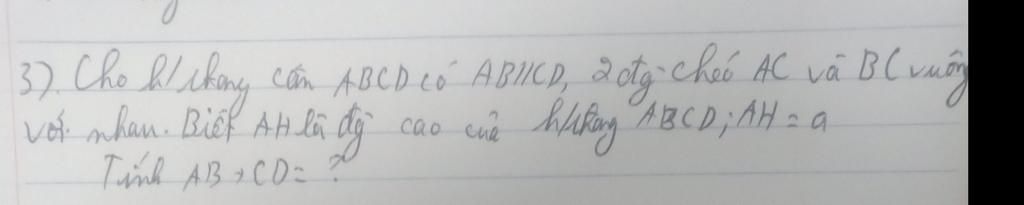 3). Cho h/thang cân ABCD có AB//CD, 2 đg chéo AC và BC vuông
với nhau. Biết AH là đg cao của h/thang ABCD; AH = a
Tính AB + CD = ?